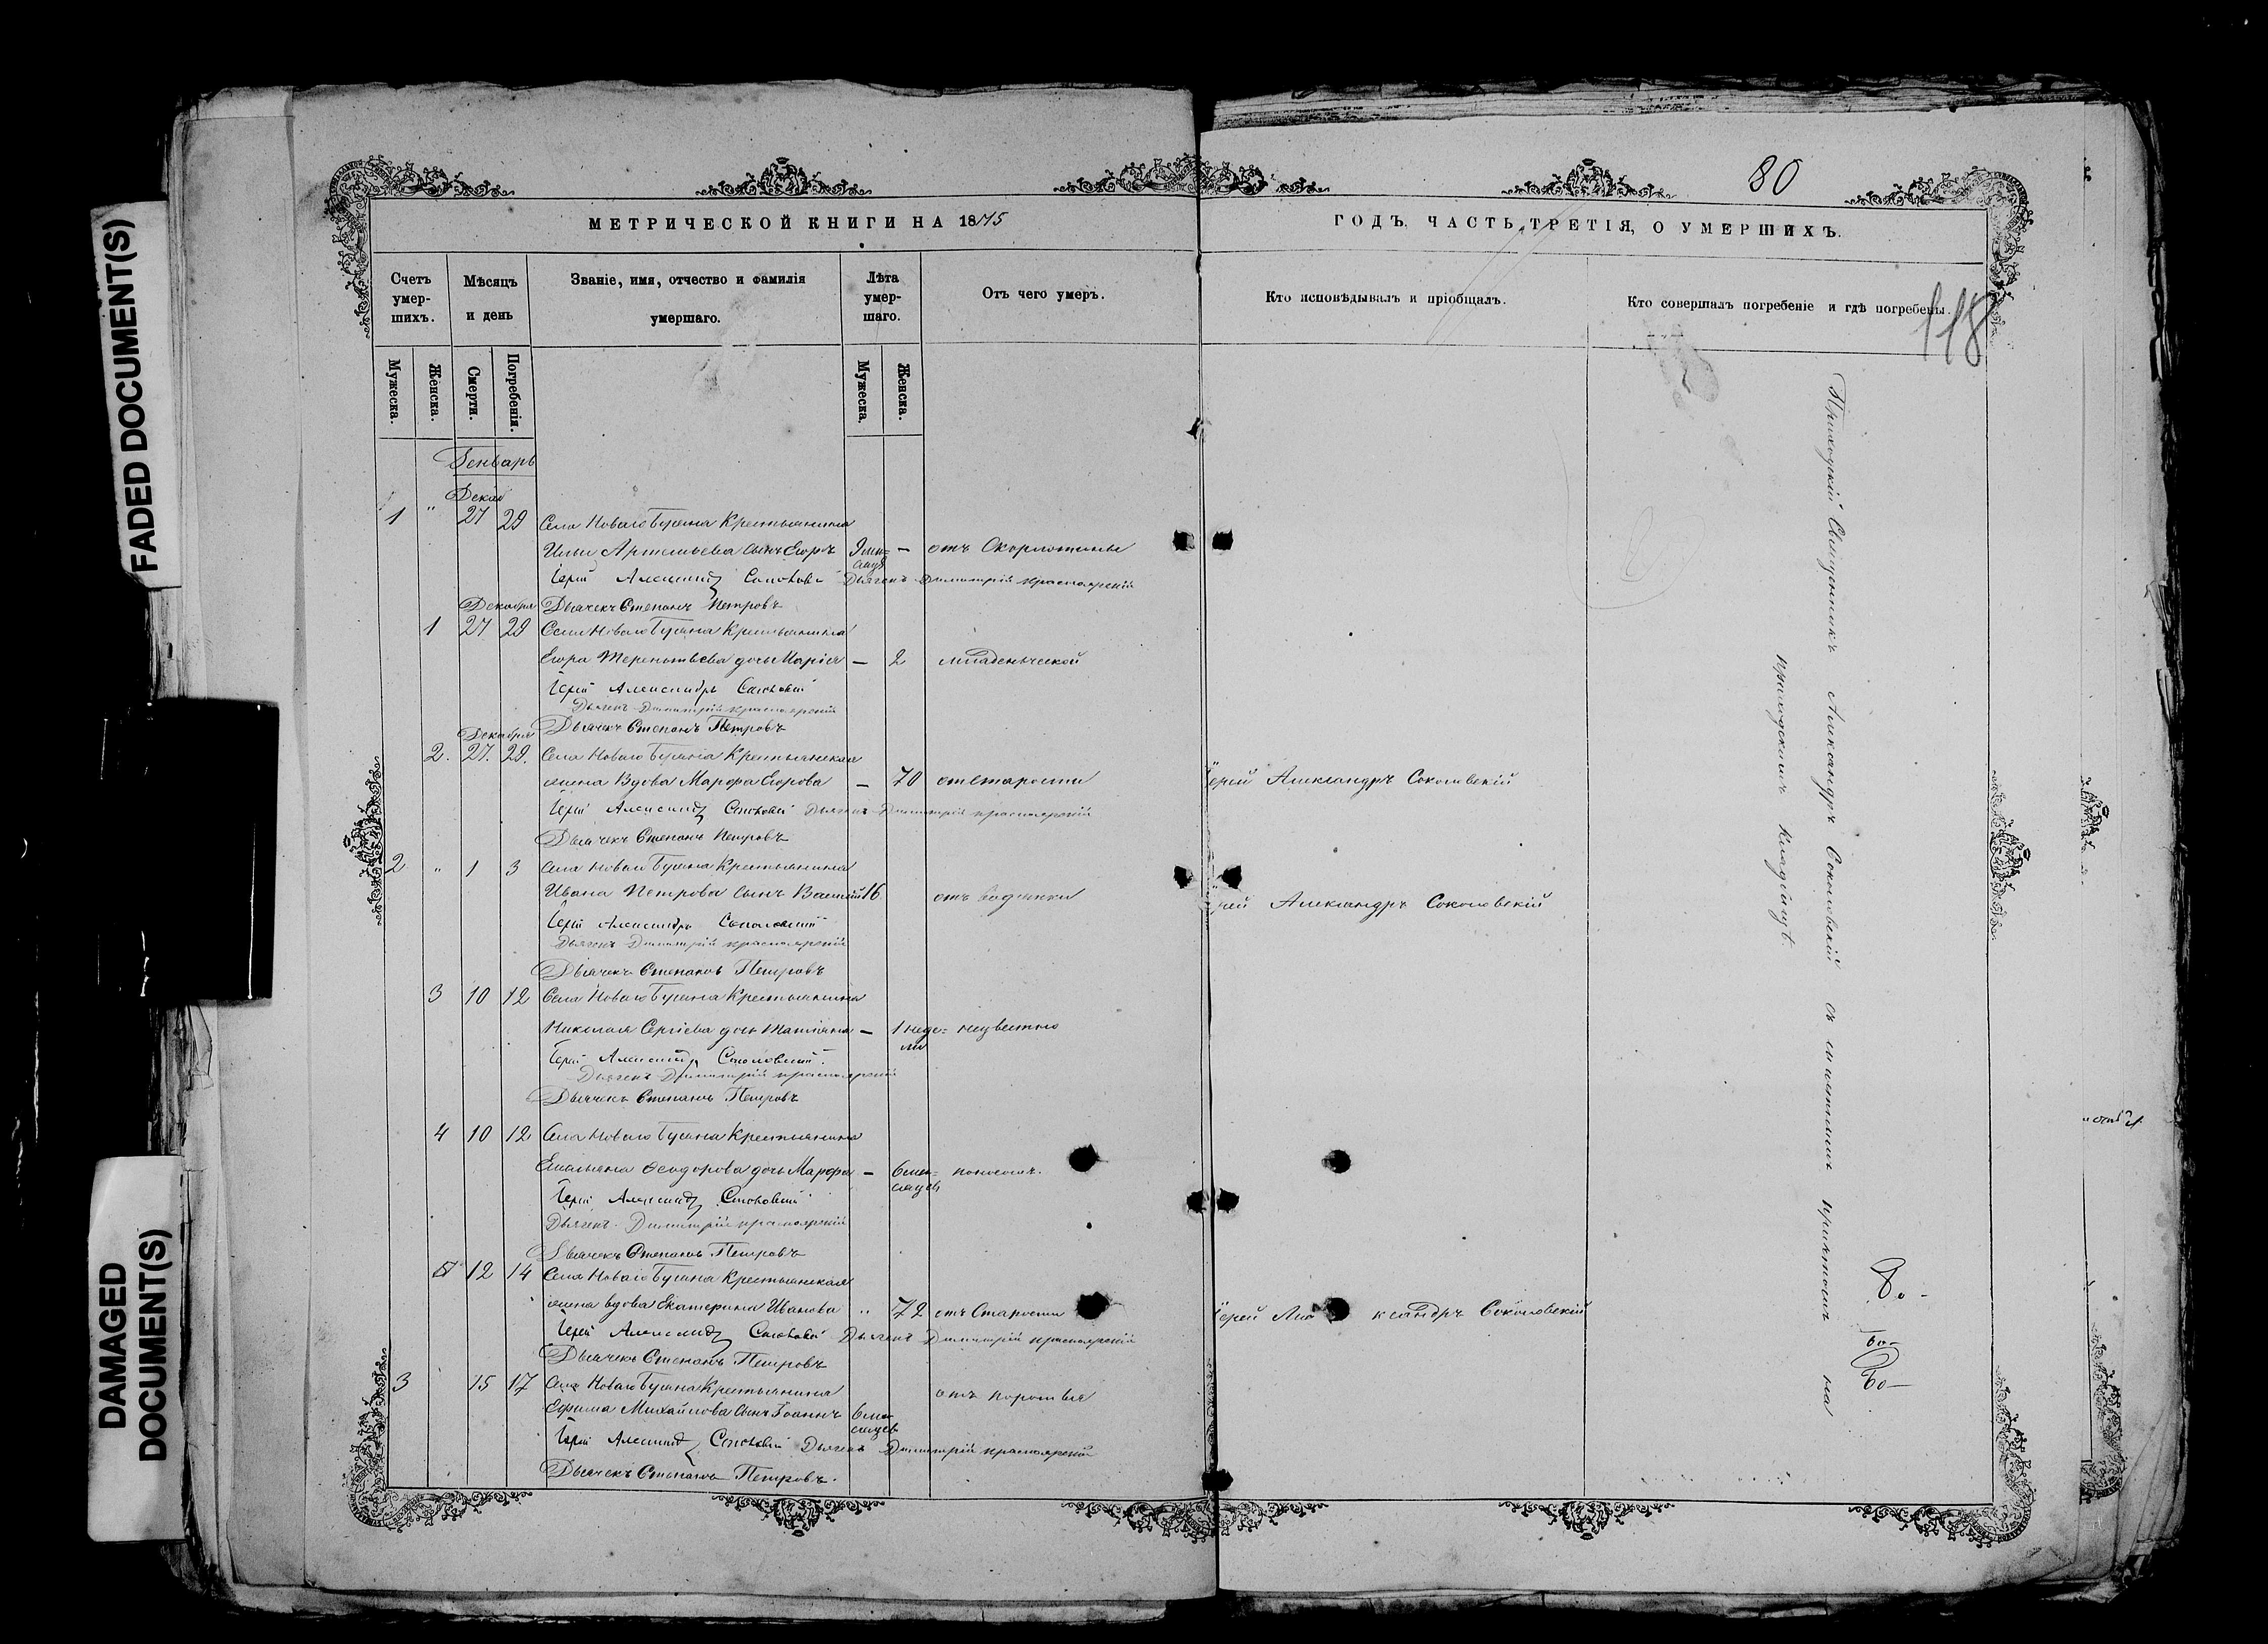 FADED DOCUMENT(S)
DAMAGED
DOCUMENT(S)
80
118
МЕТРИЧЕСКОЙ КНИГИ НА 1875
ГОДЪ, ЧАСТЬ ТРЕТІЯ, О УМЕРШИХЪ.
Счетъ умер-шихъ.
Мѣсяцъ и день
Званіе, имя, отчество и фамилія умершаго.
Лѣта умер-шаго.
Отъ чего умеръ.
Кто исповѣдывалъ и пріобщалъ.
Кто совершалъ погребеніе и гдѣ погребены.
Мужеска.
Женска.
Смерти.
Погребенія.
Мужеска.
Женска.
Генварь
Декаб
1 " 27 29 Села Новаго Буяна Крестьянина
Ильи Артемьева сынъ Егоръ 9 мѣсяцъ — отъ Скорлотины
Іерей Александръ Соколовскій Дьяконъ Димитрій Красноярскій
Декабря Дьячекъ Степанъ Петровъ
1 27 29 Села Новаго Буяна Крестьянина
Егора Терентьева дочь Марія — 2 младенческой
Іерей Александръ Соколовскій
Дьяконъ Димитрій Красноярскій
Декабря Дьячекъ Степанъ Петровъ
2. 27. 29. Села Новаго Буяна Крестьянская
жена Вдова Марфа Егорова — 70 отъ старости Іерей Александръ Соколовскій
Іерей Александръ Соколовскій Дьяконъ Димитрій Красноярскій
Дьячекъ Степанъ Петровъ
2 " 1 3 Села Новаго Буяна Крестьянина
Ивана Петрова сынъ Василій 16 отъ водянки Іерей Александръ Соколовскій
Іерей Александръ Соколовскій
Дьяконъ Димитрій Красноярскій
Дьячекъ Степанъ Петровъ
3 10 12 Села Новаго Буяна Крестьянина
Николая Сергіева дочь Татіяна — 1 неде=ли неизвестно
Іерей Александръ Соколовскій
Дьяконъ Димитрій Красноярскій
Дьячекъ Степанъ Петровъ
4 10 12 Села Новаго Буяна Крестьянина
Емельяна Феодорова дочь Марфа — 6 мѣ=сяцевъ поносомъ.
Іерей Александръ Соколовскій
Дьяконъ Димитрій Красноярскій
Дьячекъ Степанъ Петровъ
5 12 14 Села Новаго Буяна Крестьянская
жена вдова Екатерина Иванова " 72 отъ Старости Іерей Александръ Соколовскій
Іерей Александръ Соколовскій Дьяконъ Димитрій Красноярскій
Дьячекъ Степанъ Петровъ
3 15 17 Села Новаго Буяна Крестьянина
Ефима Михайлова сынъ Іоаннъ 6 мѣсяцевъ
Іерей Александръ Соколовскій Дьяконъ Димитрій Красноярскій
Дьячекъ Степанъ Петровъ.
Приходскій Священникъ Александръ Соколовскій съ симъ причтомъ на
приходскимъ кладбищѣ.